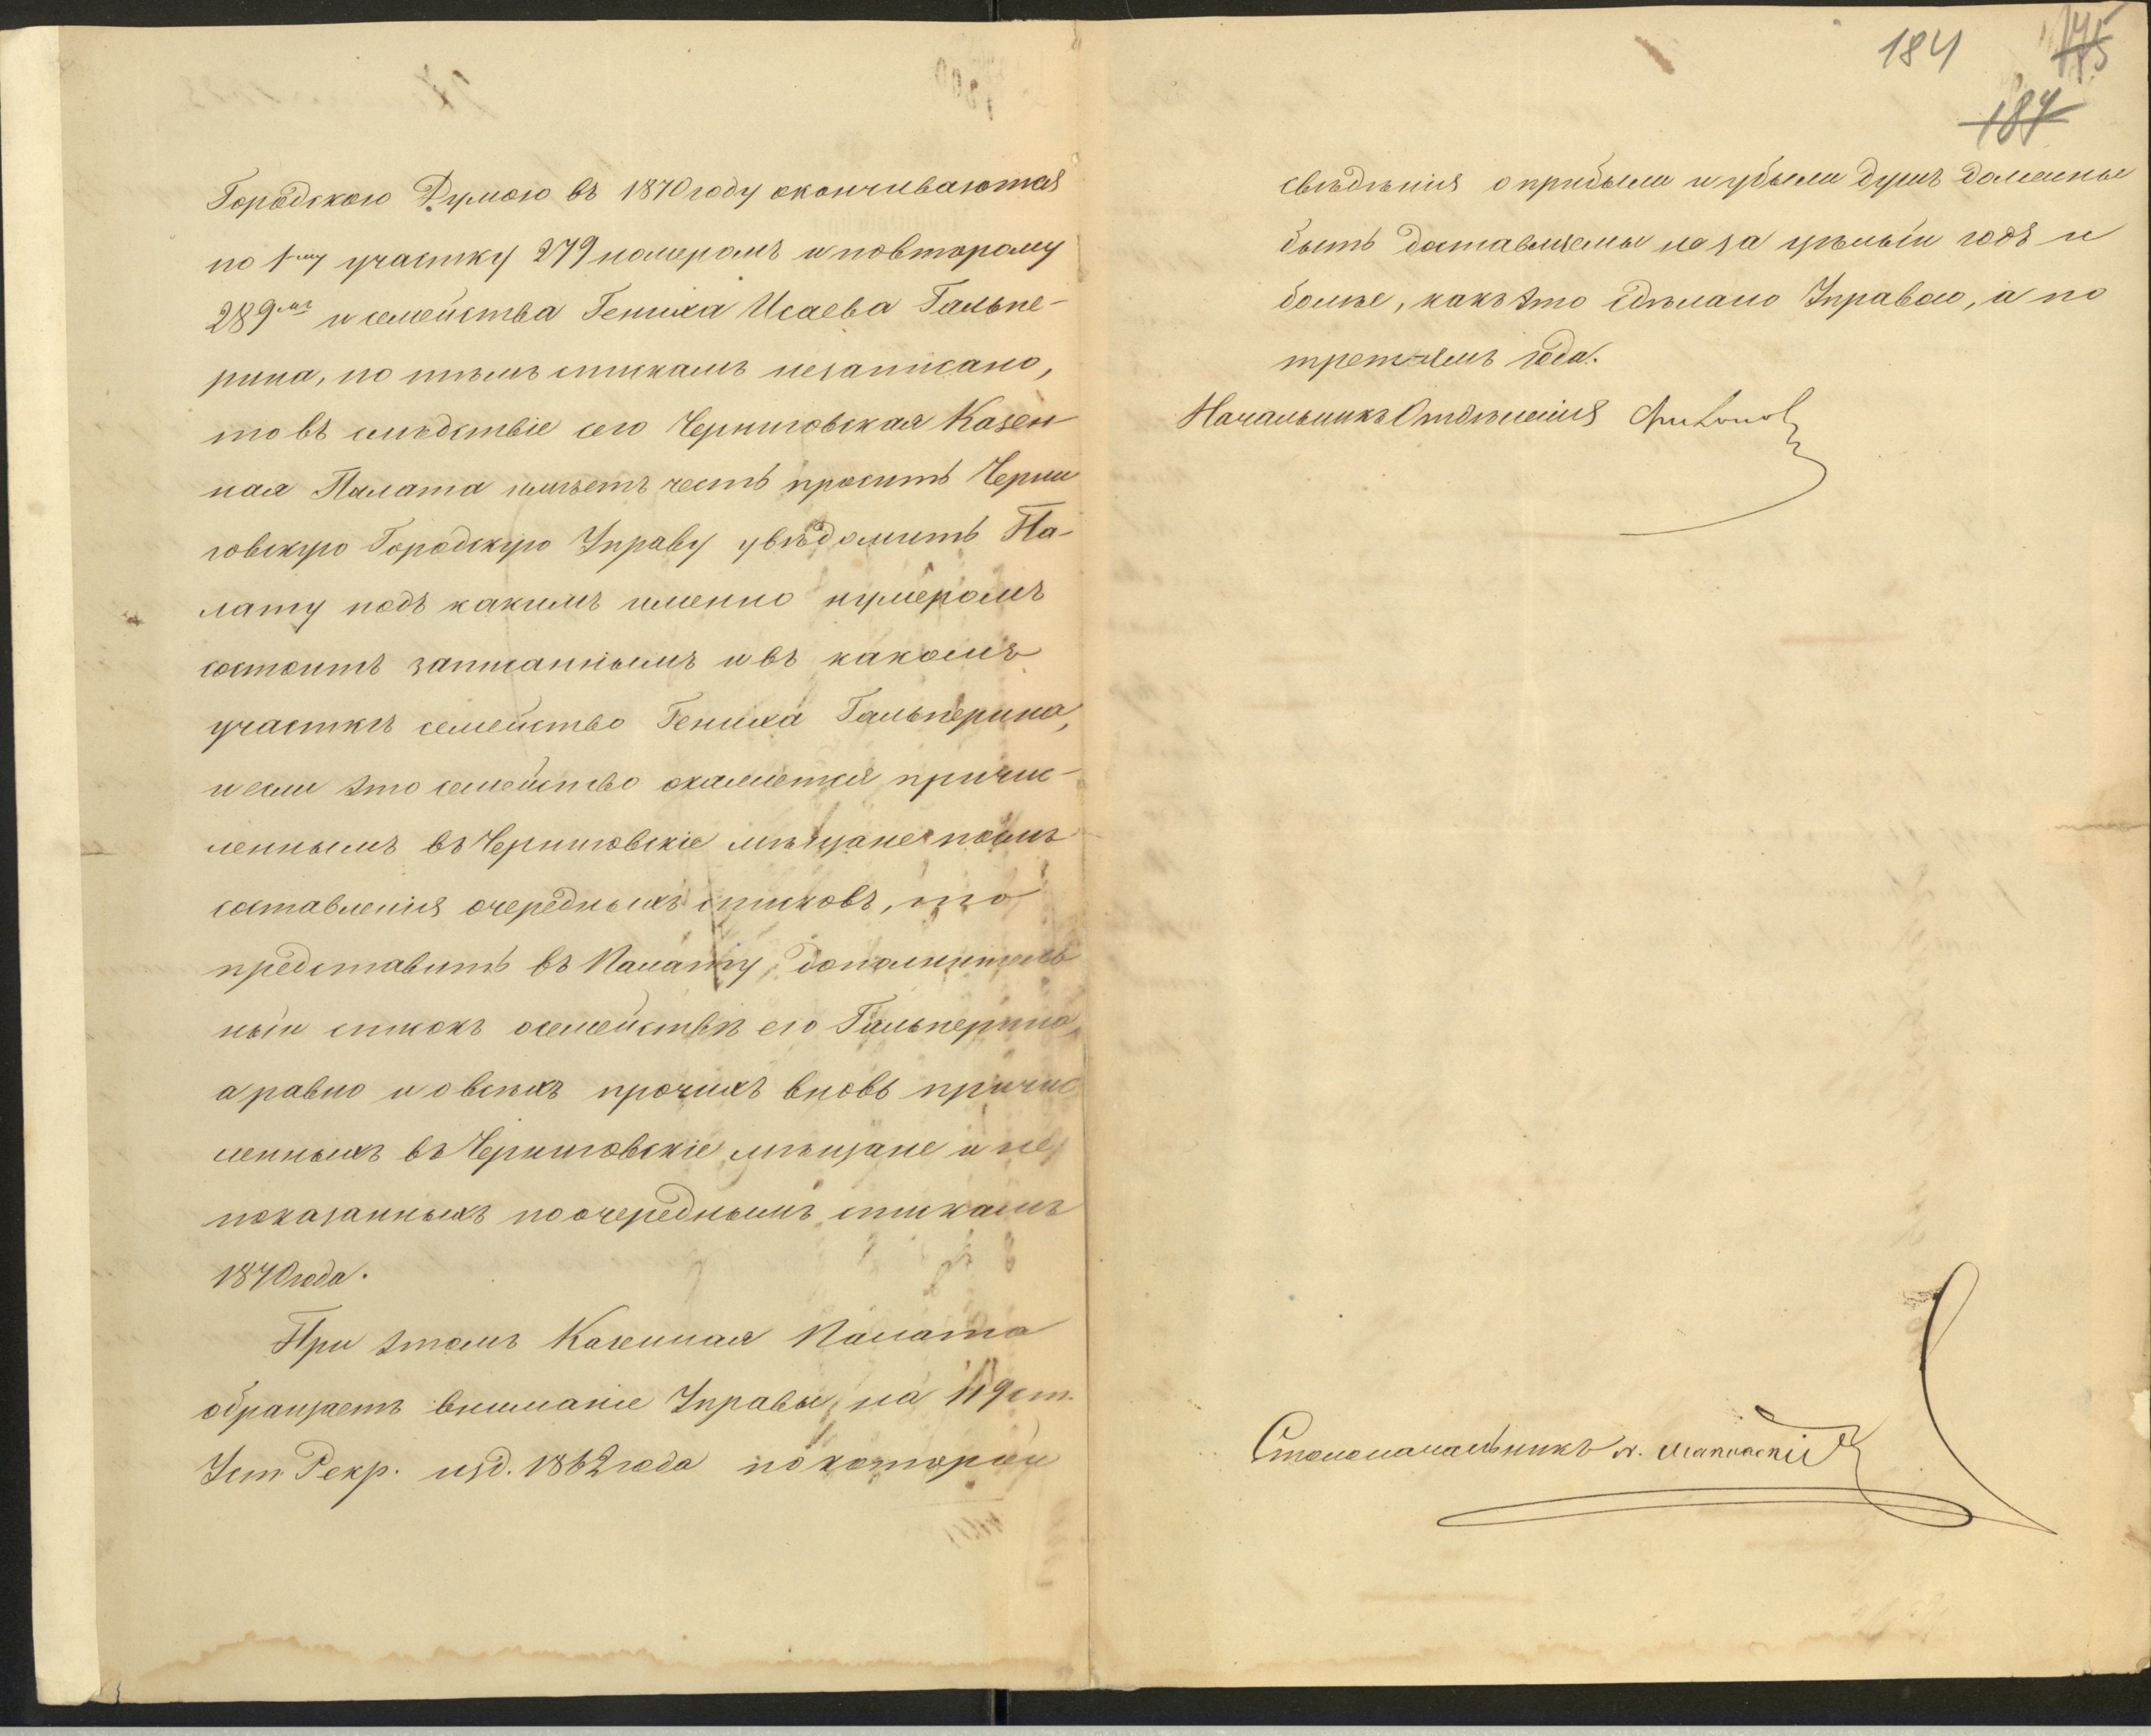 Городскою Думою въ 1870 году окончиваются
по 1му участку 279 номеромъ и повторому
289мъ и семейства Гениха Исаева Гальпе-
рина, по тѣмъ спискамъ незаписано,
товъ слѣдствіе сего Черниговская Казен
ная Палата имѣетъ честь просить Черни
говскую Городскую Управу увѣдомить Па-
лату подъ какимъ именно нумеромъ
состоитъ записаннымъ и въ какомъ
участкѣ семейство Гениха Гальперина,
и если это семейство окажется причис-
леннымъ въ Черниговскіе мѣщане послѣ
составленія очередныхъ списковъ, то
представить въ Палату, дополнитель
ный списокъ осемействѣ его Гальперина,
а равно и о всѣхъ прочихъ вновь причис
ленныхъ въ Черниговскіе мѣщане и не
показанныхъ по очереднымъ спискамъ
1870 года.
При этомъ Казенная Палата
обращаетъ вниманіе Управы, на 119 ст.
Уст. Рекр. изд. 1862 года по которой
184
175
184
свѣдѣнія о прибыли и убыли душъ должны
быть доставляемы не за цѣлый годъ и
болѣе, какъ это сдѣлано Управою, а по
третямъ года.
Начальникъ Отдѣленія
Столоначальникъ